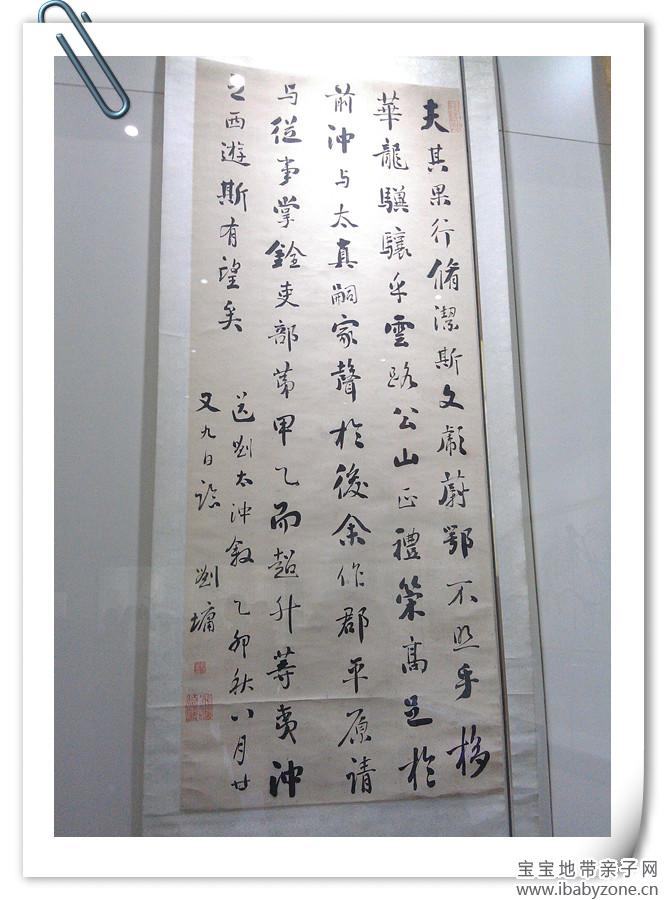 夫其果行脩潔斯文彪蔚鄂不照乎栘
華龍驥驤乎雲路公山正禮策高足於
前沖与太真嗣家聲於後余作郡平原請
与從事掌銓吏部第甲乙而超升等夷沖
之西遊斯有望矣
送劉太沖敘乙卯秋八月廿
又九日臨 劉墉
宝宝地带亲子网
www.ibabyzone.cn